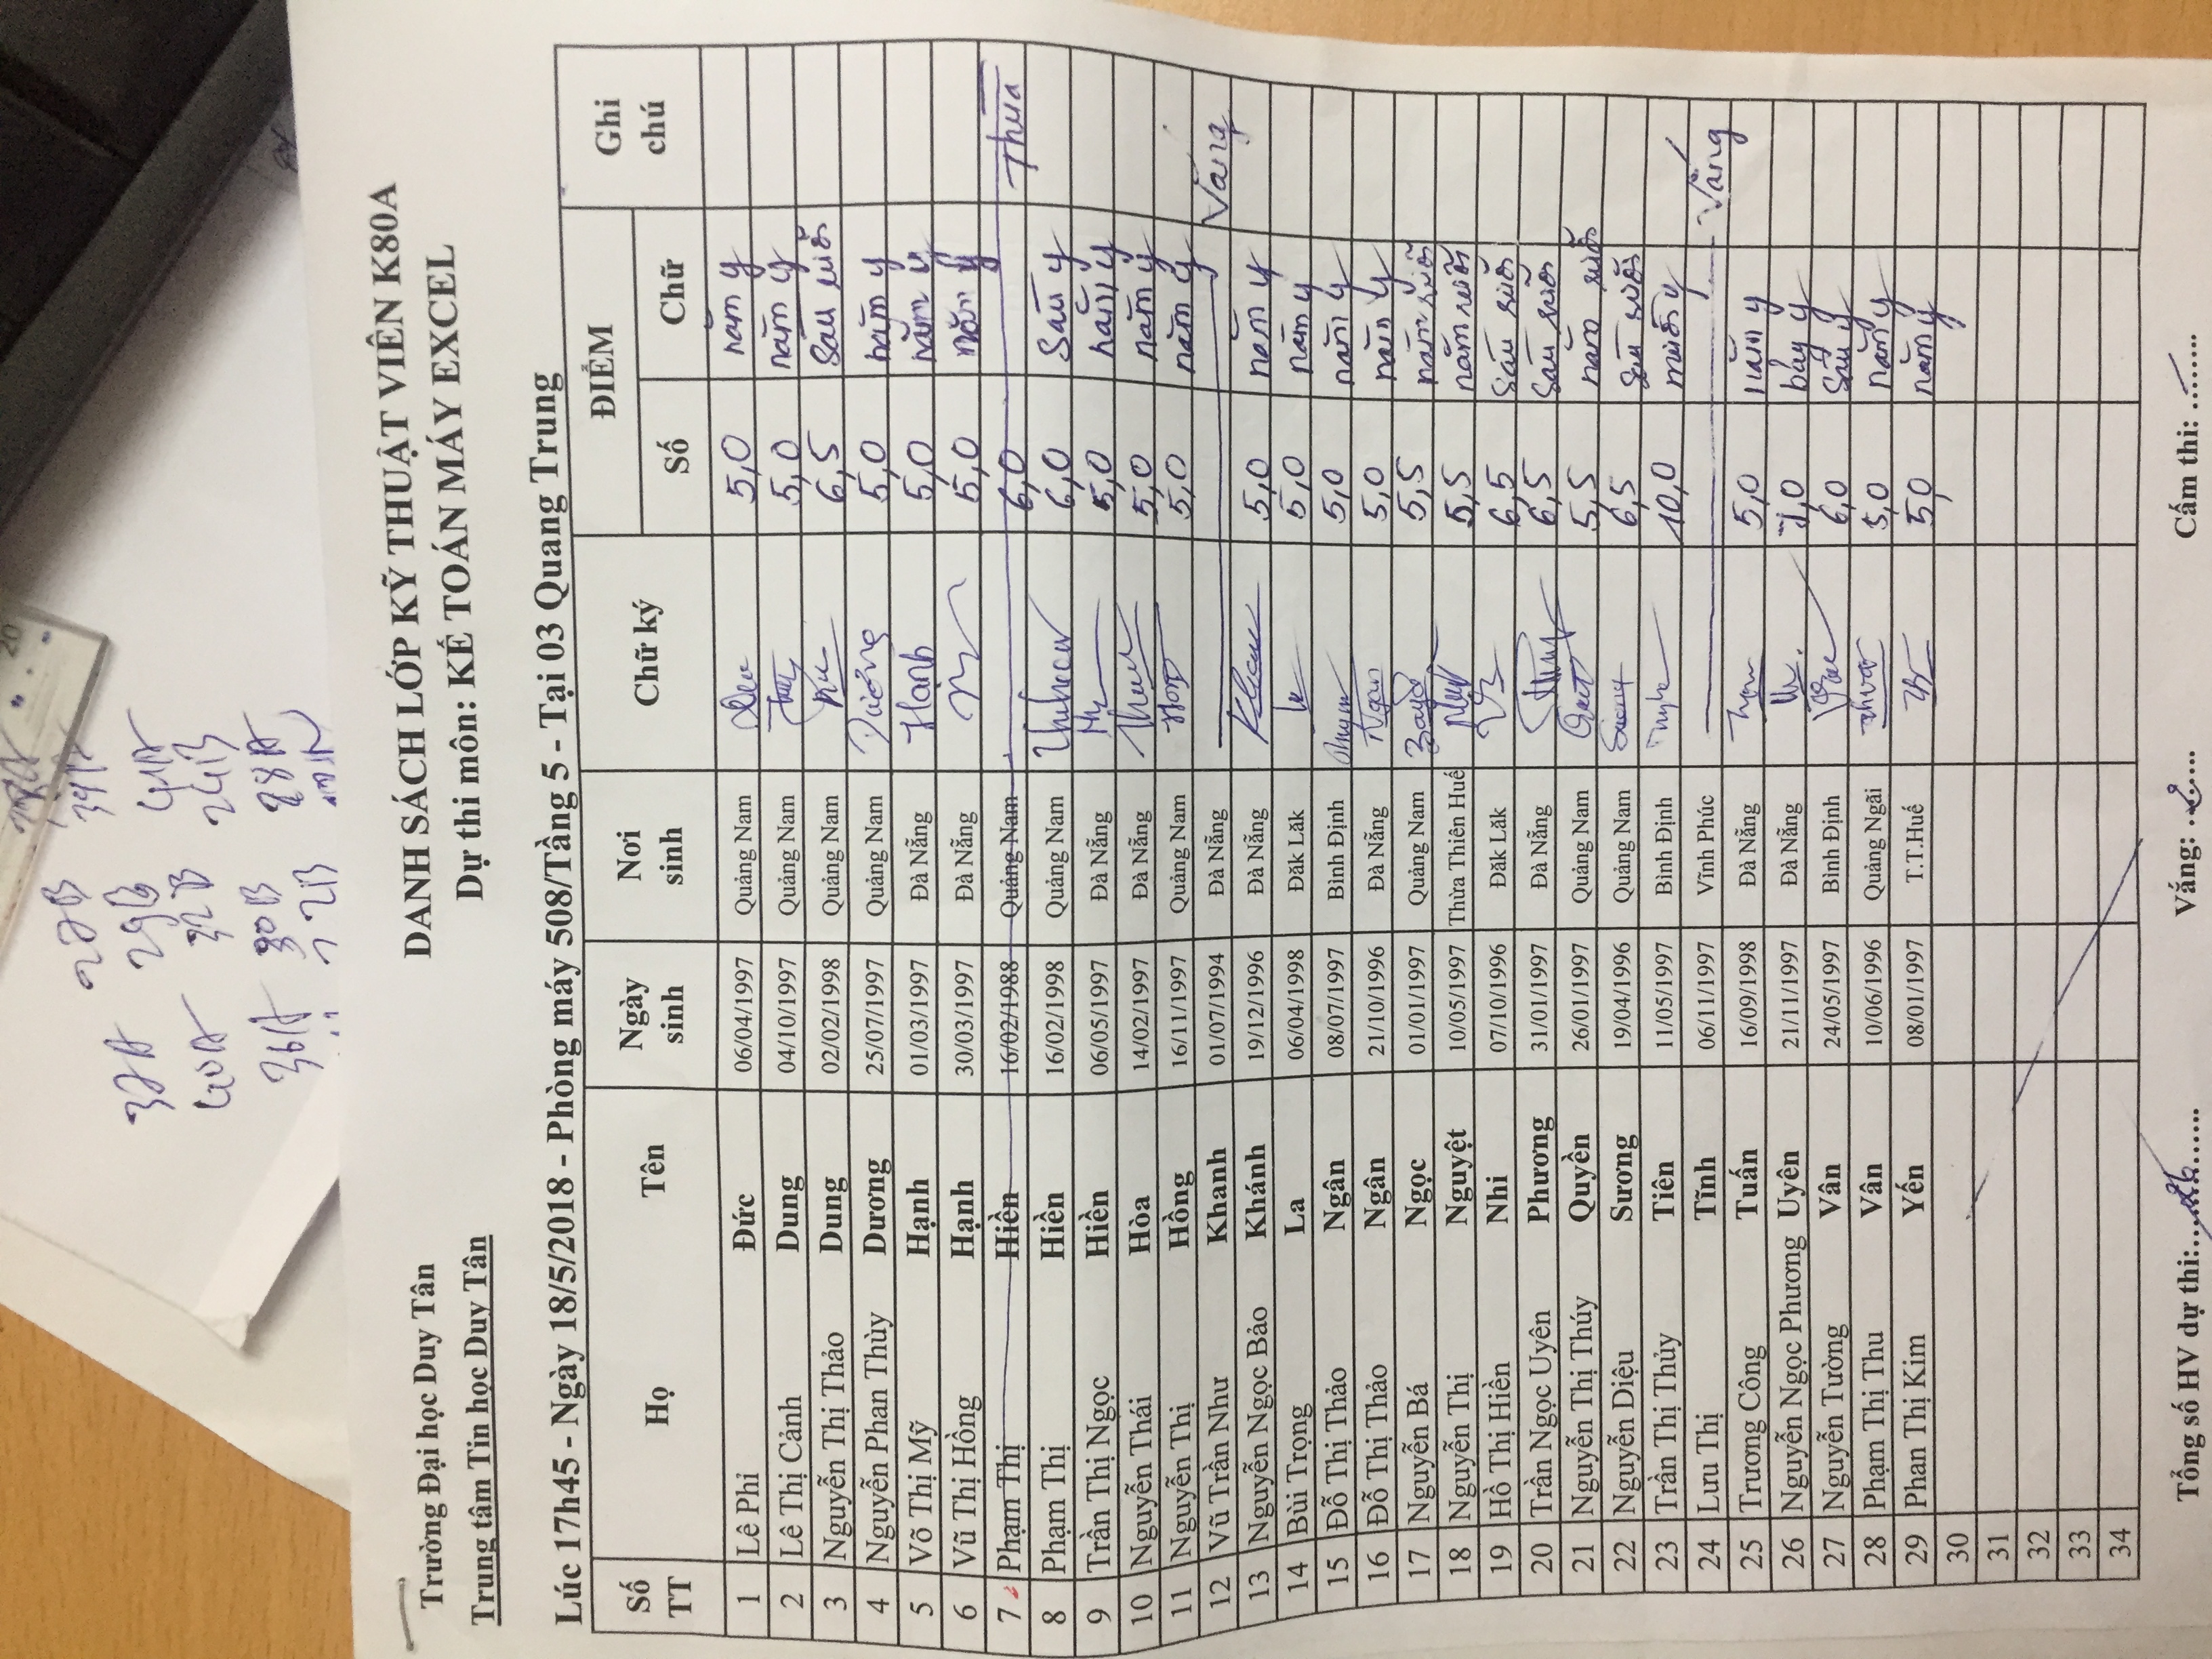 37A 27B 39A
40A 29B 41A
32B 24B
36A 30B 28A
Trường Đại học Duy Tân
Trung tâm Tin học Duy Tân
DANH SÁCH LỚP KỸ THUẬT VIÊN K80A
Dự thi môn: KẾ TOÁN MÁY EXCEL
Lúc 17h45 - Ngày 18/5/2018 - Phòng máy 508/Tầng 5 - Tại 03 Quang Trung
Số TT Họ Tên Ngày sinh Nơi sinh Chữ ký ĐIỂM Ghi chú
Số Chữ
1 Lê Phi Đức 06/04/1997 Quảng Nam 5,0 năm y
2 Lê Thị Cảnh Dung 04/10/1997 Quảng Nam 5,0 năm y
3 Nguyễn Thị Thảo Dung 02/02/1998 Quảng Nam 6,5 Sáu rưỡi
4 Nguyễn Phan Thùy Dương 25/07/1997 Quảng Nam Dương 5,0 năm y
5 Võ Thị Mỹ Hạnh 01/03/1997 Đà Nẵng Hạnh 5,0 năm y
6 Vũ Thị Hồng Hạnh 30/03/1997 Đà Nẵng 5,0 năm y
7 Phạm Thị Hiền 16/02/1988 Quảng Nam 6,0 Thừa
8 Phạm Thị Hiền 16/02/1998 Quảng Nam 6,0 Sáu y
9 Trần Thị Ngọc Hiền 06/05/1997 Đà Nẵng 5,0 năm y
10 Nguyễn Thái Hòa 14/02/1997 Đà Nẵng 5,0 năm y
11 Nguyễn Thị Hồng 16/11/1997 Quảng Nam 5,0 năm y
12 Vũ Trần Như Khanh 01/07/1994 Đà Nẵng Vắng
13 Nguyễn Ngọc Bảo Khánh 19/12/1996 Đà Nẵng 5,0 năm y
14 Bùi Trọng La 06/04/1998 Đăk Lăk 5,0 năm y
15 Đỗ Thị Thảo Ngân 08/07/1997 Bình Định 5,0 năm y
16 Đỗ Thị Thảo Ngân 21/10/1996 Đà Nẵng Ngân 5,0 năm y
17 Nguyễn Bá Ngọc 01/01/1997 Quảng Nam 5,5 năm rưỡi
18 Nguyễn Thị Nguyệt 10/05/1997 Thừa Thiên Huế 5,5 năm rưỡi
19 Hồ Thị Hiền Nhi 07/10/1996 Đăk Lăk 6,5 Sáu rưỡi
20 Trần Ngọc Uyên Phương 31/01/1997 Đà Nẵng 6,5 Sáu rưỡi
21 Nguyễn Thị Thúy Quyền 26/01/1997 Quảng Nam 5,5 năm rưỡi
22 Nguyễn Diệu Sương 19/04/1996 Quảng Nam 6,5 Sáu rưỡi
23 Trần Thị Thủy Tiên 11/05/1997 Bình Định 10,0 mười y
24 Lưu Thị Tĩnh 06/11/1997 Vĩnh Phúc Vắng
25 Trương Công Tuấn 16/09/1998 Đà Nẵng 5,0 năm y
26 Nguyễn Ngọc Phương Uyên 21/11/1997 Đà Nẵng 7,0 bảy y
27 Nguyễn Tường Vân 24/05/1997 Bình Định 6,0 Sáu y
28 Phạm Thị Thu Vân 10/06/1996 Quảng Ngãi 5,0 năm y
29 Phan Thị Kim Yến 08/01/1997 T.T.Huế 5,0 năm y
30
31
32
33
34
Tổng số HV dự thi:............ Vắng: ........ Cấm thi: ........